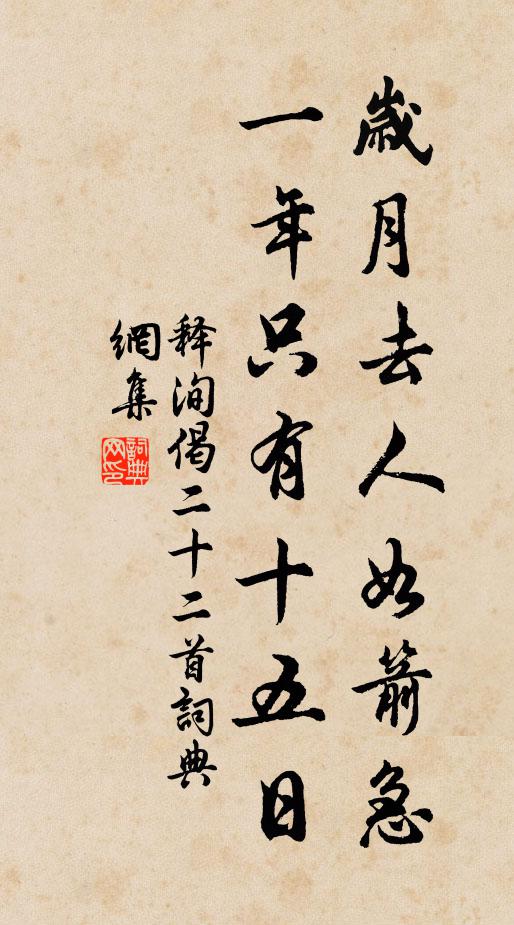 歲月去人如箭急
一年只有十五日
释洵偈二十二首詞典
網集
詞典網印